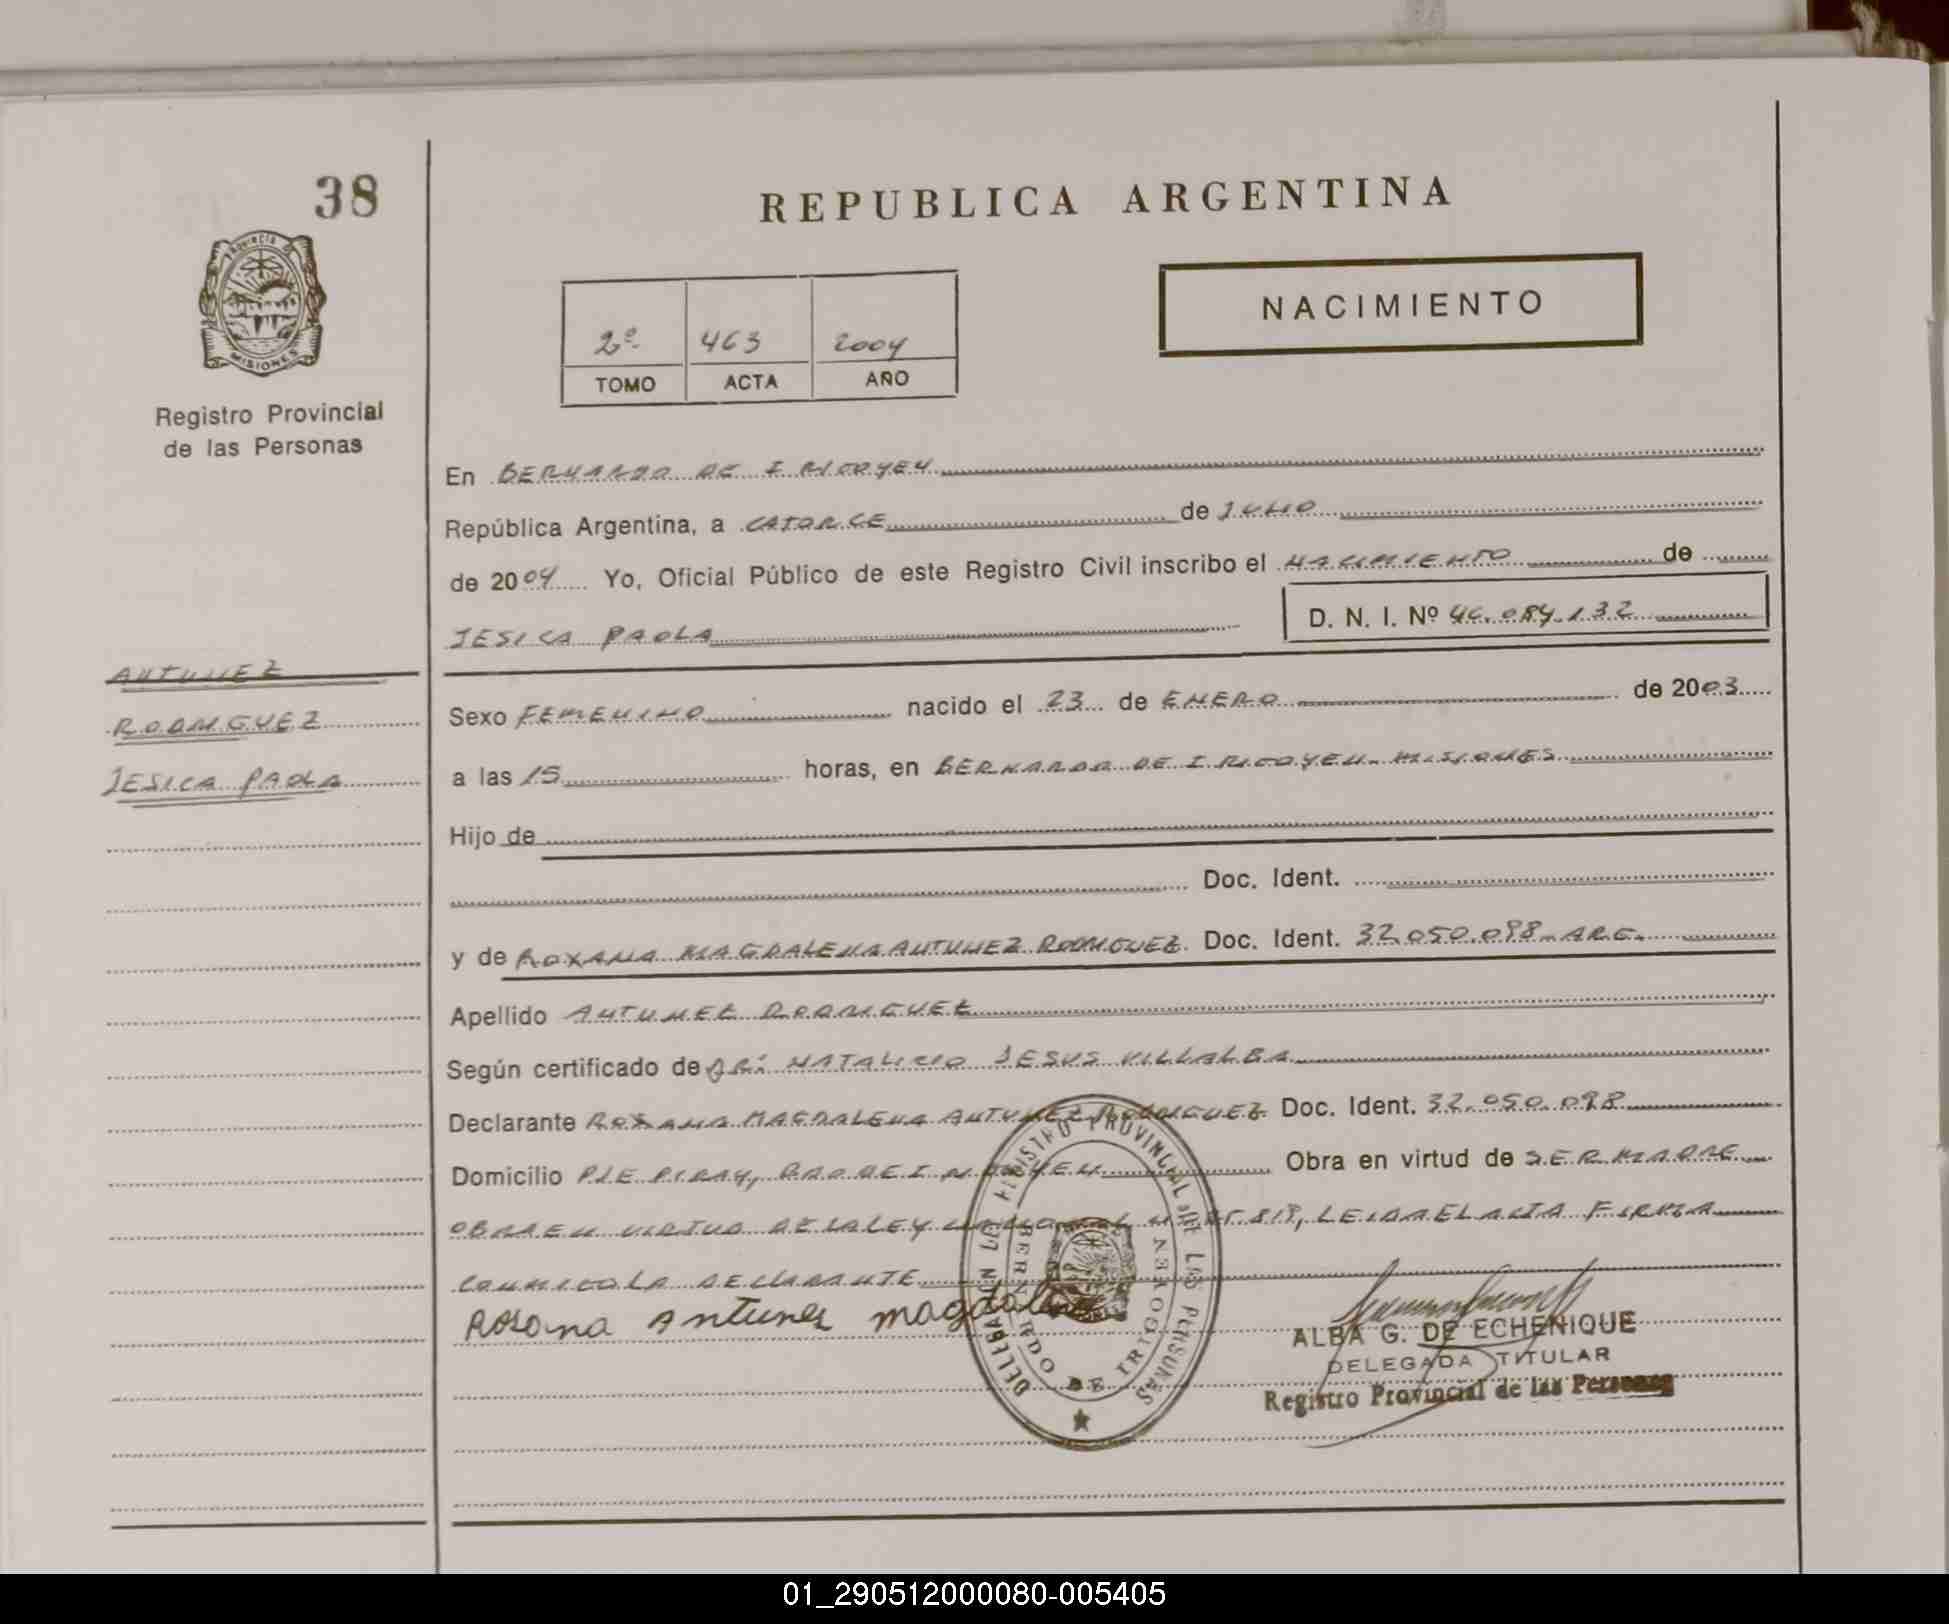 38
REPUBLICA ARGENTINA
Provincia de
MISIONES
NACIMIENTO
2º 463 2004
TOMO ACTA AÑO
Registro Provincial
de las Personas
En BERNARDO DE IRIGOYEN
República Argentina, a CATORCE de JULIO
de 2004 Yo, Oficial Público de este Registro Civil inscribo el NACIMIENTO de
JESICA PAOLA D. N. I. Nº 46.084.132
ANTUNEZ
RODRIGUEZ
JESICA PAOLA
Sexo FEMENINO nacido el 23 de ENERO de 2003
a las 15 horas, en BERNARDO DE IRIGOYEN. MISIONES
Hijo de
Doc. Ident.
y de ROXANA MAGDALENA ANTUNEZ RODRIGUEZ Doc. Ident. 32.050.098-ARG.
Apellido ANTUNEZ RODRIGUEZ
Según certificado de DR: NATALICIO JESUS VILLALBA
Declarante ROXANA MAGDALENA ANTUNEZ RODRIGUEZ Doc. Ident. 32.050.098
Domicilio PJE PIRAY, BDO DE IRIGOYEN Obra en virtud de SER MADRE
OBRA EN VIRTUD DE LA LEY NACIONAL Nº 25.819, LEIDA EL ACTA FIRMA
CONMIGO LA DECLARANTE
Rosana Antunez magdalena
DELEGACION DEL REGISTRO PROVINCIAL DE LAS PERSONAS
BERNARDO DE IRIGOYEN
ALBA G. DE ECHENIQUE
DELEGADA TITULAR
Registro Provincial de las Personas
01_290512000080-005405